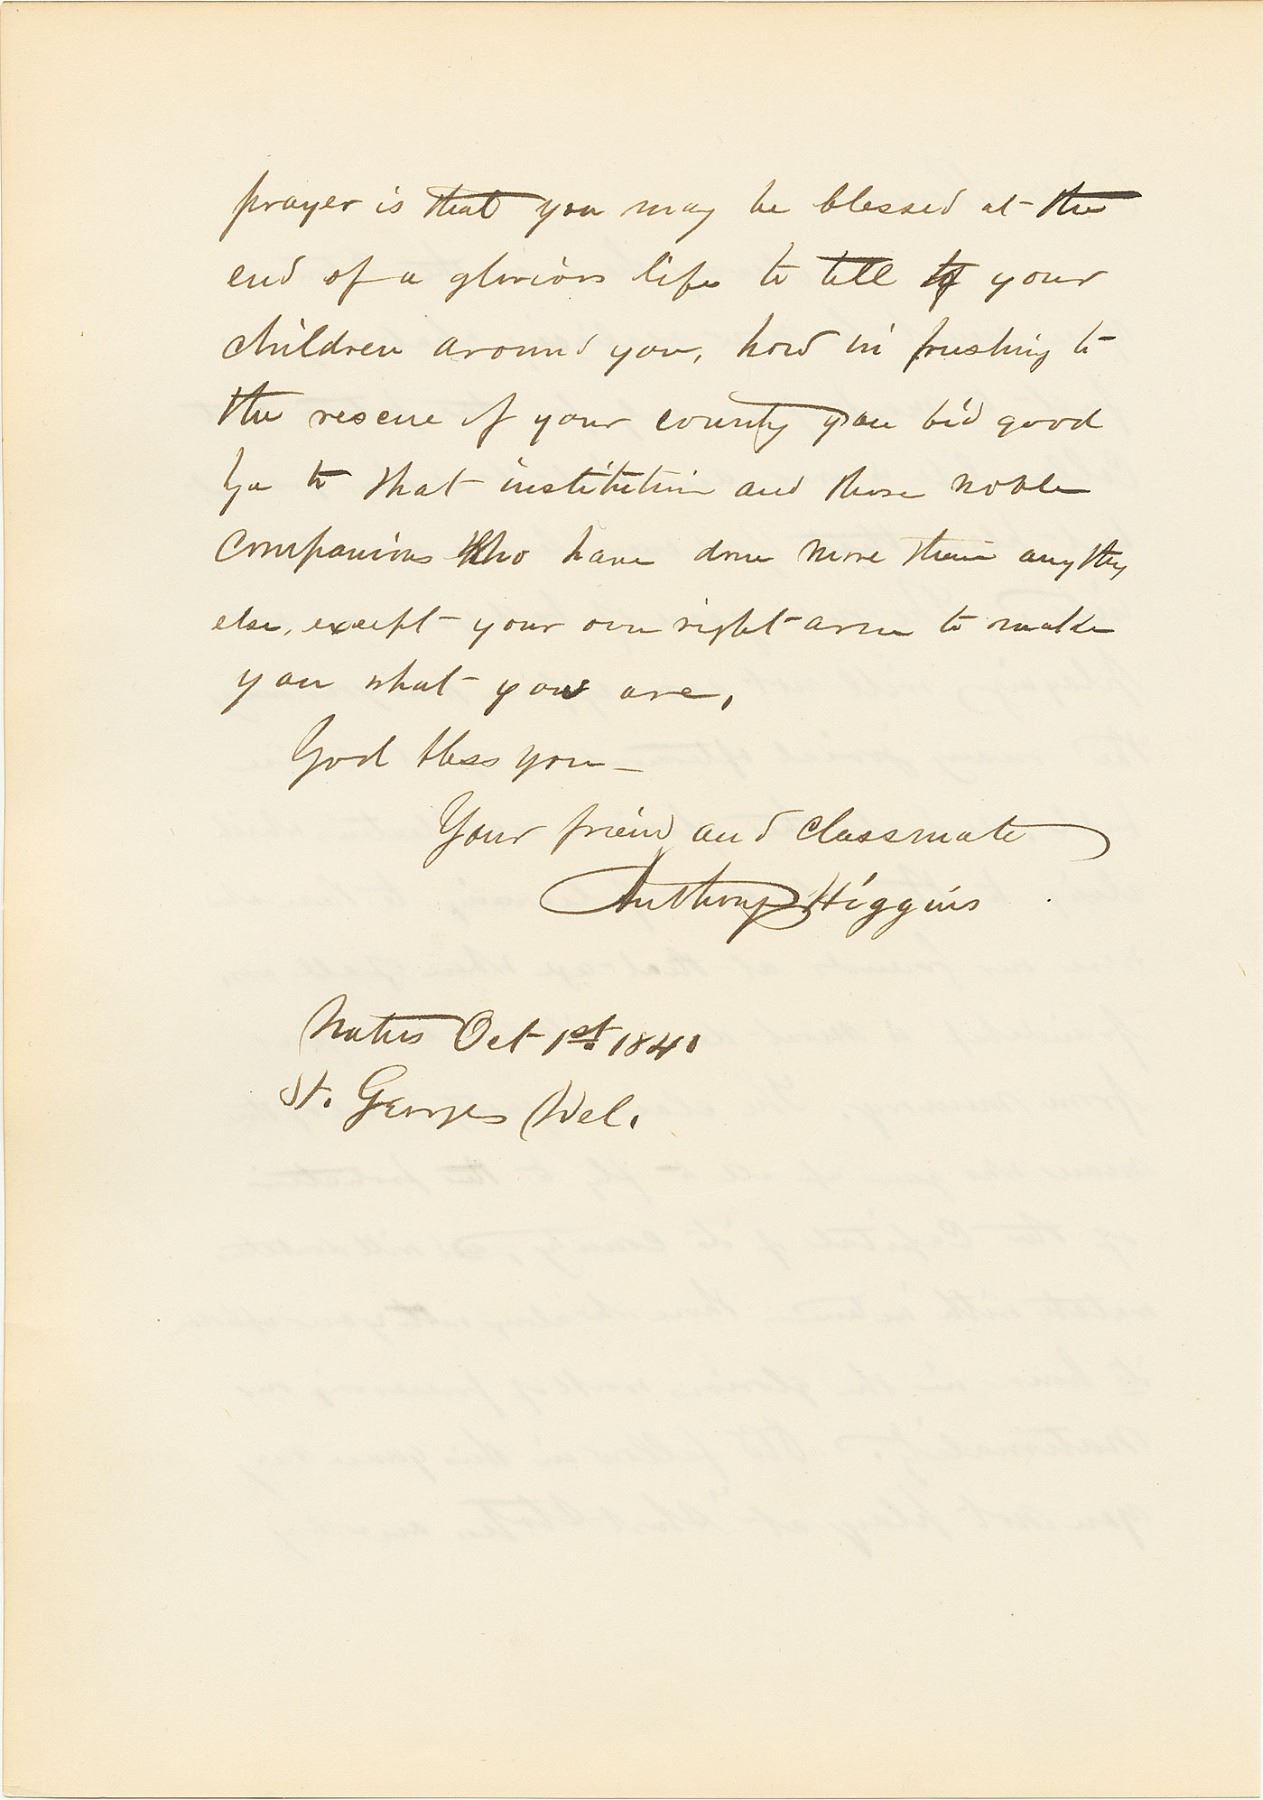 prayer is that you may be blessed at the
end of a glorious life to tell to your
children around you, how in rushing to
the rescue of your county you bid good
by to that institution and those noble
companions who have done more than any thing
else, except your own right arm to make
you what you are,
God bless you—
Your friend and classmate
Anthony Higgins
Natus Oct 1st. 1840
St. Georges Del.